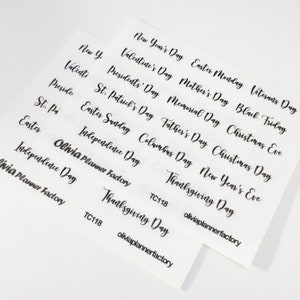 New Year's Day
Easter Monday
Veterans Day
Valentine's Day
Mother's Day
Black Friday
Presidents' Day
Memorial Day
Christmas Eve
St. Patrick's Day
Father's Day
Christmas Day
Easter Sunday
Columbus Day
New Year's Eve
Independence Day
Thanksgiving Day
Olivia Planner Factory
TC118
oliviaplannerfactory
New Ye
Valenti
Preside
St. Pa
Easter
Independence Day
Thanksgiving Day
Olivia Planner Factory
TC118
oliviaplannerfactory